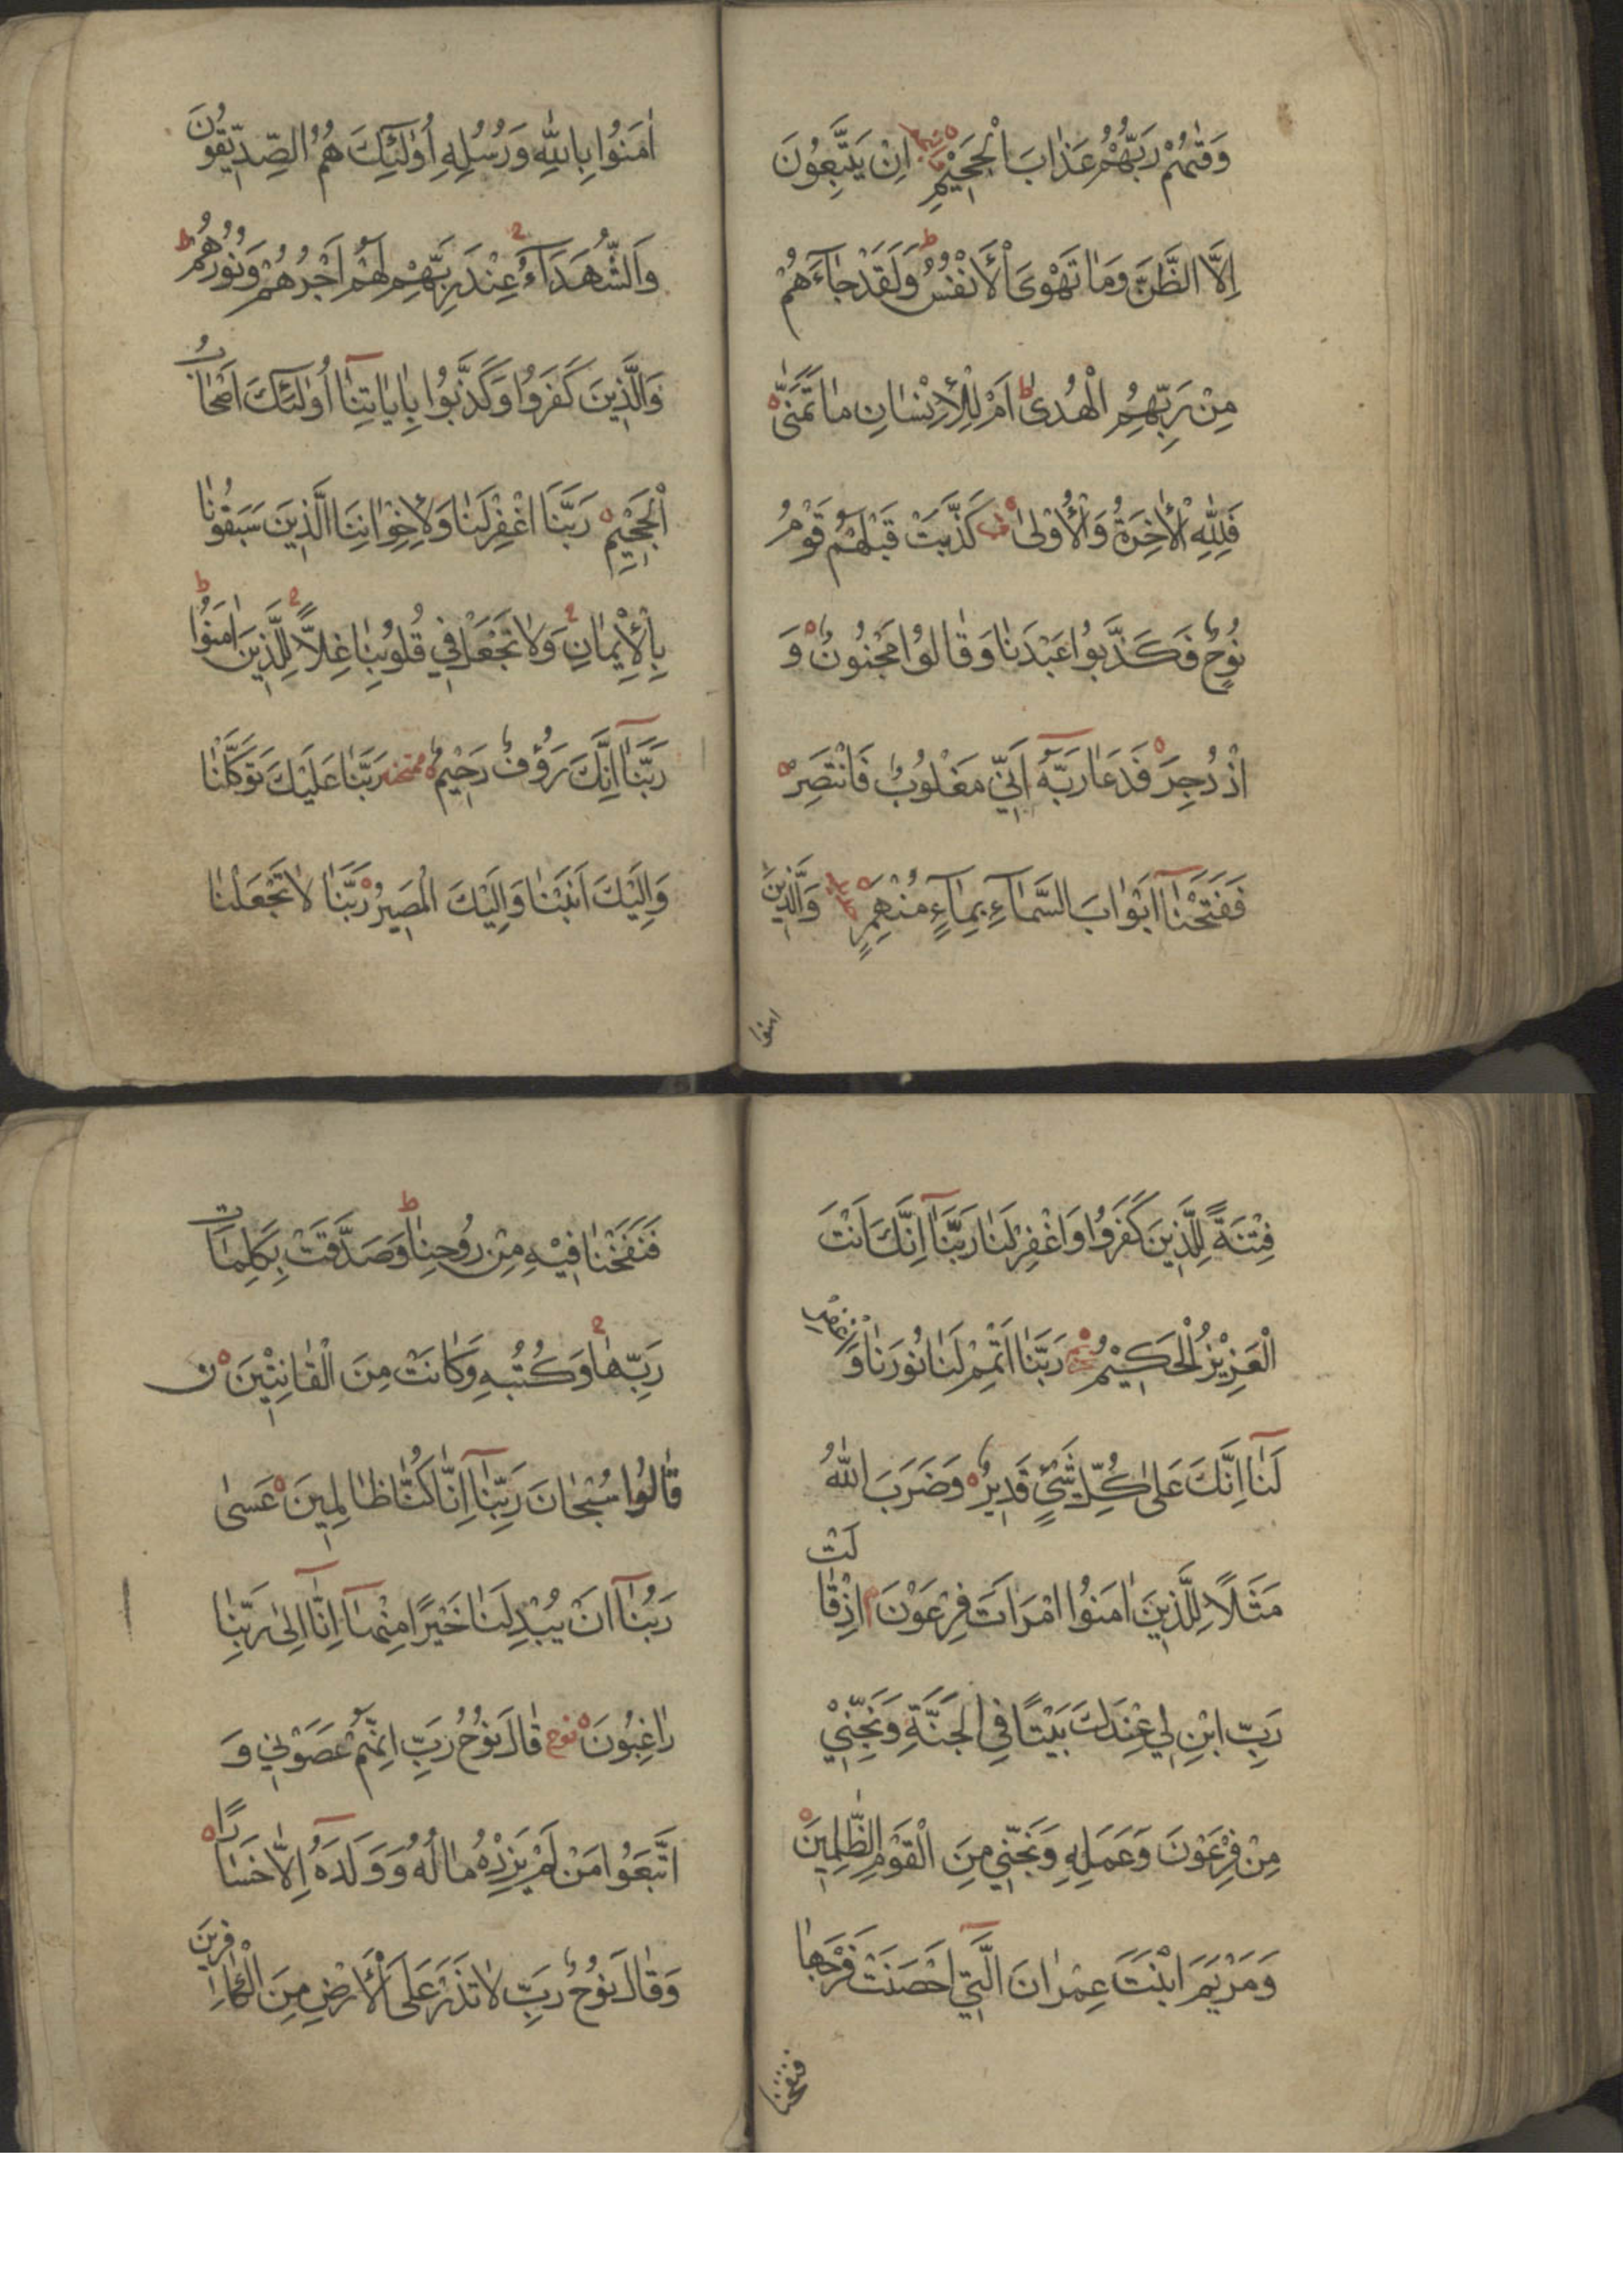 وَقٰیهُمْ رَبُّهُمْ عَذٰابَ الْجَحٖیمِ اِنْ یَتَّبِعُونَ
اِلَّا الظَّنَّ وَمٰا تَهْوَى الْأَنْفُسُ ط وَلَقَدْ جٰٓاءَهُمْ
مِنْ رَبِّهِمِ الْهُدىٰ ط اَمْ لِلْأِنْسٰانِ مٰا تَمَنّٰى
فَلِلّٰهِ الْأٰخِرَةُ وَالْأُوْلىٰ كَذَّبَتْ قَبْلَهُمْ قَوْمُ
نُوْحٍ فَكَذَّبُوا عَبْدَنٰا وَقٰالُوا مَجْنُونٌ وَ
ازْدُجِرَ فَدَعٰا رَبَّهُٓ اَنّٖي مَغْلُوبٌ فَانْتَصِرْ
فَفَتَحْنٰٓا اَبْوٰابَ السَّمٰٓاءِ بِمٰٓاءٍ مُنْهَمِرٍ حديد وَالَّذٖینَ
امنوا
اٰمَنُوا بِاللّٰهِ وَرُسُلِهِ اُوٰلٓئِكَ هُمُ الصِّدّٖیقُونَ
وَالشُّهَدَآءُ عِنْدَ رَبِّهِمْ لَهُمْ اَجْرُهُمْ وَنُوْرُهُمْ ط
وَالَّذٖینَ كَفَرُوا وَكَذَّبُوا بِاٰیٰاتِنٰٓا اُوٰلٓئِكَ اَصْحٰابُ
الْجَحٖیْمِ رَبَّنَا اغْفِرْ لَنٰا وَلِأِخْوٰانِنَا الَّذٖینَ سَبَقُونٰا
بِالْأِیْمٰانِ وَلٰا تَجْعَلْ فٖي قُلُوبِنٰا غِلّاً لِلَّذٖینَ اٰمَنُوا ط
رَبَّنٰٓا اِنَّكَ رَؤُفٌ رَحٖیْمٌ ممتحنه رَبَّنٰا عَلَیْكَ تَوَكَّلْنٰا
وَاِلَیْكَ اَنَبْنٰا وَاِلَیْكَ الْمَصٖیرُ رَبَّنٰا لٰا تَجْعَلْنٰا
فِتْنَةً لِلَّذٖینَ كَفَرُوا وَاغْفِرْ لَنٰا رَبَّنٰٓا اِنَّكَ اَنْتَ
الْعَزِیْزُ الْحَكٖیْمُ تحريم رَبَّنٰا اَتْمِمْ لَنٰا نُورَنٰا وَاغْفِرْ
لَنٰٓا اِنَّكَ عَلىٰ كُلِّ شَیْءٍ قَدٖیرٌ وَضَرَبَ اللّٰهُ
مَثَلاً لِلَّذٖینَ اٰمَنُوا امْرَاَتَ فِرْعَوْنَ م اِذْ قٰالَتْ
رَبِّ ابْنِ لٖي عِنْدَكَ بَیْتًا فِي الْجَنَّةِ وَنَجِّنٖيْ
مِنْ فِرْعَوْنَ وَعَمَلِهِ وَنَجِّنٖي مِنَ الْقَوْمِ الظّٰلِمٖینَ
وَمَرْیَمَ ابْنَتَ عِمْرٰانَ الَّتٖٓي اَحْصَنَتْ فَرْجَهٰا
فنفخنا
فَنَفَخْنٰا فٖیْهِ مِنْ رُوْحِنٰا ط وَصَدَّقَتْ بِكَلِمٰاتِ
رَبِّهٰا وَكُتُبِهِ وَكٰانَتْ مِنَ الْقٰانِتٖیْنَ ن
قٰالُوا سُبْحٰانَ رَبِّنٰٓا اِنّٰا كُنّٰا ظٰالِمٖینَ عَسىٰ
رَبُّنٰٓا اَنْ یُبْدِلَنٰا خَیْرًا مِنْهٰٓا اِنّٰٓا اِلىٰ رَبِّنٰا
رٰاغِبُونَ نوح قٰالَ نُوْحٌ رَبِّ اِنَّهُمْ عَصَوْنٖي وَ
اتَّبَعُوا مَنْ لَمْ یَزِدْهُ مٰالُهُ وَوَلَدُهُٓ اِلّٰا خَسٰارًا
وَقٰالَ نُوْحٌ رَبِّ لٰا تَذَرْ عَلَى الْأَرْضِ مِنَ الْكٰافِرٖینَ